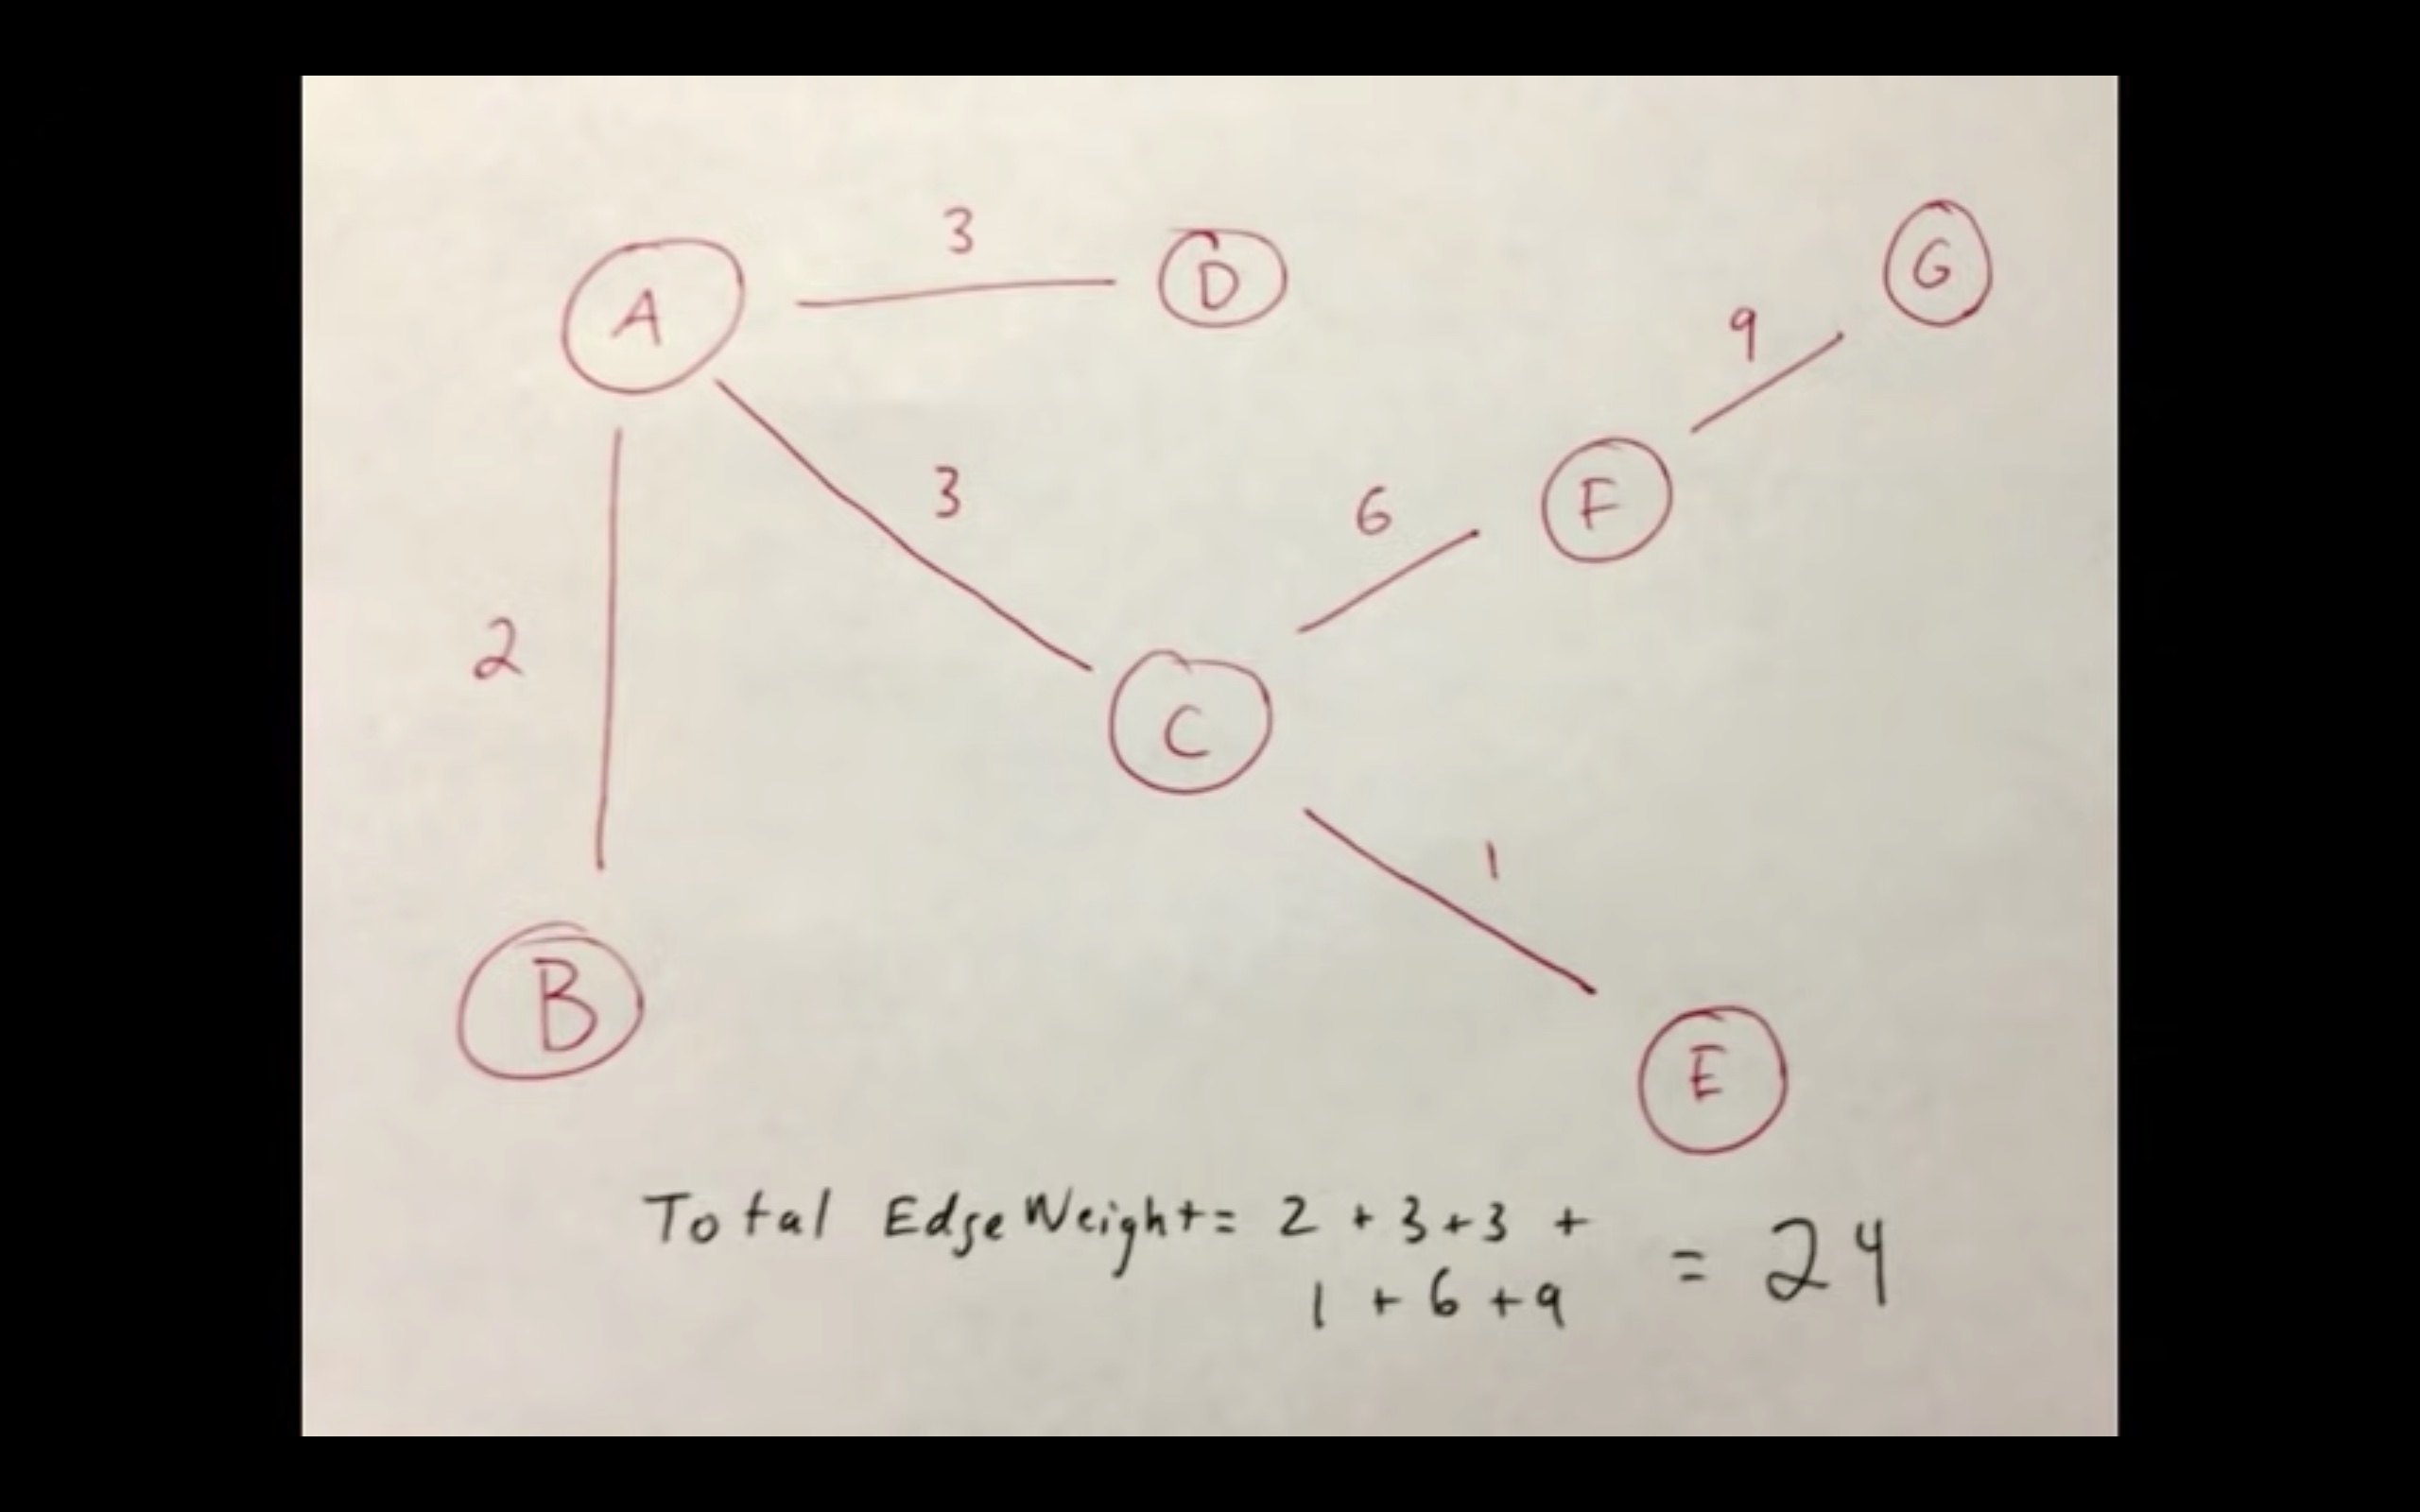 3
A
D
G
9
3
6
F
2
C
1
B
E
Total Edge Weight = 2 + 3 + 3 +
1 + 6 + 9
= 24